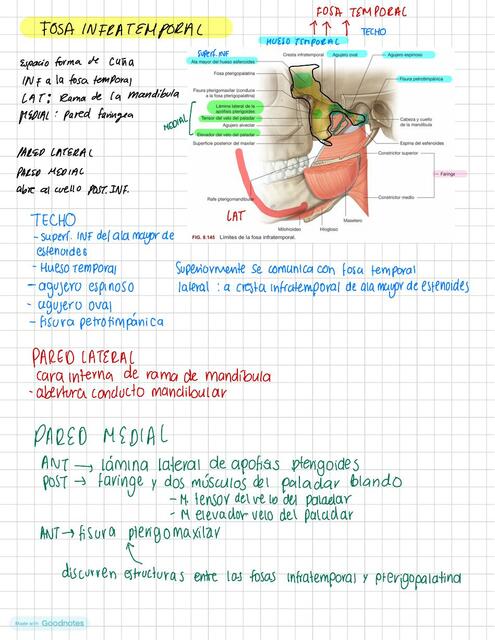 FOSA INFRATEMPORAL
Espacio forma de cuña
INF a la fosa temporal
LAT: Rama de la mandíbula
MEDIAL: Pared faríngea
PARED LATERAL
PARED MEDIAL
abre al cuello POST. INF.
FOSA TEMPORAL
TECHO
HUESO TEMPORAL
SUPERF. INF
Ala mayor del hueso esfenoides
Cresta infratemporal
Agujero oval
Agujero espinoso
Fosa pterigopalatina
Fisura petrotimpánica
Fisura pterigomaxilar (conduce
a la fosa pterigopalatina)
MEDIAL
Lámina lateral de la
apófisis pterigoides
Tensor del velo del paladar
Agujero alveolar
Elevador del velo del paladar
Superficie posterior del maxilar
Cabeza y cuello
de la mandíbula
Espina del esfenoides
Constrictor superior
Faringe
Rafe pterigomandibular
Constrictor medio
LAT
Masetero
Milohioideo
Hiogloso
FIG. 8.145 Límites de la fosa infratemporal.
TECHO
- superf. INF del ala mayor de
esfenoides
- Hueso temporal
- agujero espinoso
- agujero oval
- fisura petrotimpánica
Superiormente se comunica con fosa temporal
lateral: a cresta infratemporal de ala mayor de esfenoides
PARED LATERAL
cara interna de rama de mandíbula
- abertura conducto mandibular
PARED MEDIAL
ANT → lámina lateral de apófisis pterigoides
POST → faringe y dos músculos del paladar blando
- M. tensor del velo del paladar
- M elevador velo del paladar
ANT → fisura pterigomaxilar
discurren estructuras entre las fosas infratemporal y pterigopalatina
Made with Goodnotes